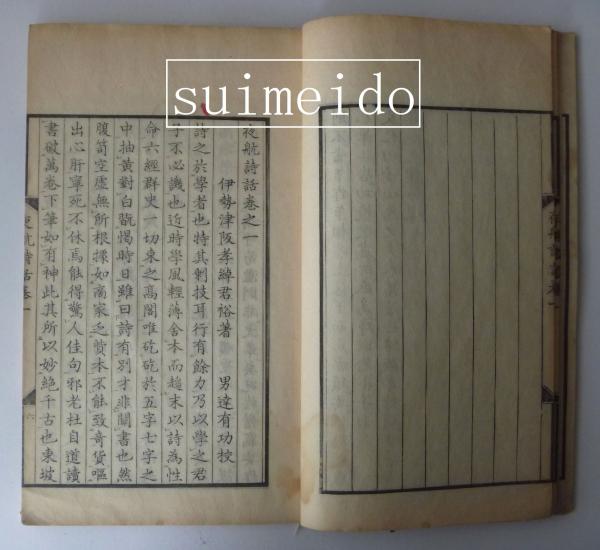 suimeido
夜航詩話卷之一
伊勢津阪孝綽君裕著 男達有功校
詩之於學者也特其剩技耳行有餘力乃以學之君
子不必譏也近時學風輕薄舍本而趨末以詩為性
命六經群史一切束之高閣唯矻矻於五字七字之
中抽黃對白翫愒時日雖曰詩有別才非關書也然
腹笥空虛無所根據如商家乏貲本不能致奇貨嘔
出心肝寧死不休焉能得驚人佳句邪老杜自道讀
書破萬卷下筆如有神此其所以妙絕千古也東坡
夜航詩話卷一